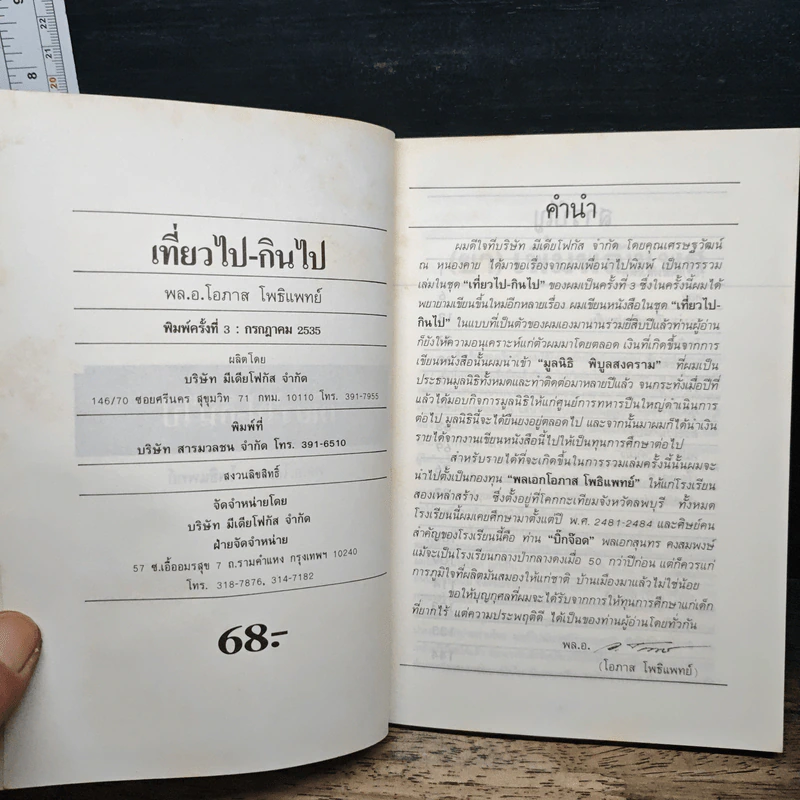 8
9
20
21
22
เที่ยวไป-กินไป
พล.อ.โอภาส โพธิแพทย์
พิมพ์ครั้งที่ 3 : กรกฎาคม 2535
ผลิตโดย
บริษัท มีเดียโฟกัส จำกัด
146/70 ซอยศรีนคร สุขุมวิท 71 กทม. 10110 โทร. 391-7955
พิมพ์ที่
บริษัท สารมวลชน จำกัด โทร. 391-6510
สงวนลิขสิทธิ์
จัดจำหน่ายโดย
บริษัท มีเดียโฟกัส จำกัด
ฝ่ายจัดจำหน่าย
57 ซ.เอื้ออมรสุข 7 ถ.รามคำแหง กรุงเทพฯ 10240
โทร. 318-7876, 314-7182
68.-
คำนำ
ผมดีใจที่บริษัท มีเดียโฟกัส จำกัด โดยคุณเศรษฐวัฒน์
ณ หนองคาย ได้มาขอเรื่องจากผมเพื่อนำไปพิมพ์ เป็นการรวม
เล่มในชุด "เที่ยวไป-กินไป" ของผมเป็นครั้งที่ 3 ซึ่งในครั้งนี้ผมได้
พยายามเขียนขึ้นใหม่อีกหลายเรื่อง ผมเขียนหนังสือในชุด "เที่ยวไป-
กินไป" ในแบบที่เป็นตัวของผมเองมานานร่วมยี่สิบปีแล้วท่านผู้อ่าน
ก็ยังให้ความอนุเคราะห์แก่ตัวผมมาโดยตลอด เงินที่เกิดขึ้นจากการ
เขียนหนังสือนั้นผมนำเข้า "มูลนิธิ พิบูลสงคราม" ที่ผมเป็น
ประธานมูลนิธิทั้งหมดและทำติดต่อมาหลายปีแล้ว จนกระทั่งเมื่อปีที่
แล้วได้มอบกิจการมูลนิธิให้แก่ศูนย์การทหารปืนใหญ่ดำเนินการ
ต่อไป มูลนิธินี้จะได้ยืนยงอยู่ตลอดไป และจากนั้นมาผมก็ได้นำเงิน
รายได้จากงานเขียนหนังสือนี้ไปให้เป็นทุนการศึกษาต่อไป
สำหรับรายได้ที่จะเกิดขึ้นในการรวมเล่มครั้งนี้นั้นผมจะ
นำไปตั้งเป็นกองทุน "พลเอกโอภาส โพธิแพทย์" ให้แก่โรงเรียน
สองเหล่าสร้าง ซึ่งตั้งอยู่ที่โคกกะเทียมจังหวัดลพบุรี ทั้งหมด
โรงเรียนนี้ผมเคยศึกษามาตั้งแต่ปี พ.ศ. 2481-2484 และศิษย์คน
สำคัญของโรงเรียนนี้คือ ท่าน "บิ๊กจ๊อด" พลเอกสุนทร คงสมพงษ์
แม้จะเป็นโรงเรียนกลางป่ากลางดงเมื่อ 50 กว่าปีก่อน แต่ก็ควรแก่
การภูมิใจที่ผลิตมันสมองให้แก่ชาติ บ้านเมืองมาแล้วไม่ใช่น้อย
ขอให้บุญกุศลที่ผมจะได้รับจากการให้ทุนการศึกษาแก่เด็ก
ที่ยากไร้ แต่ความประพฤติดี ได้เป็นของท่านผู้อ่านโดยทั่วกัน
พล.อ.
(โอภาส โพธิแพทย์)